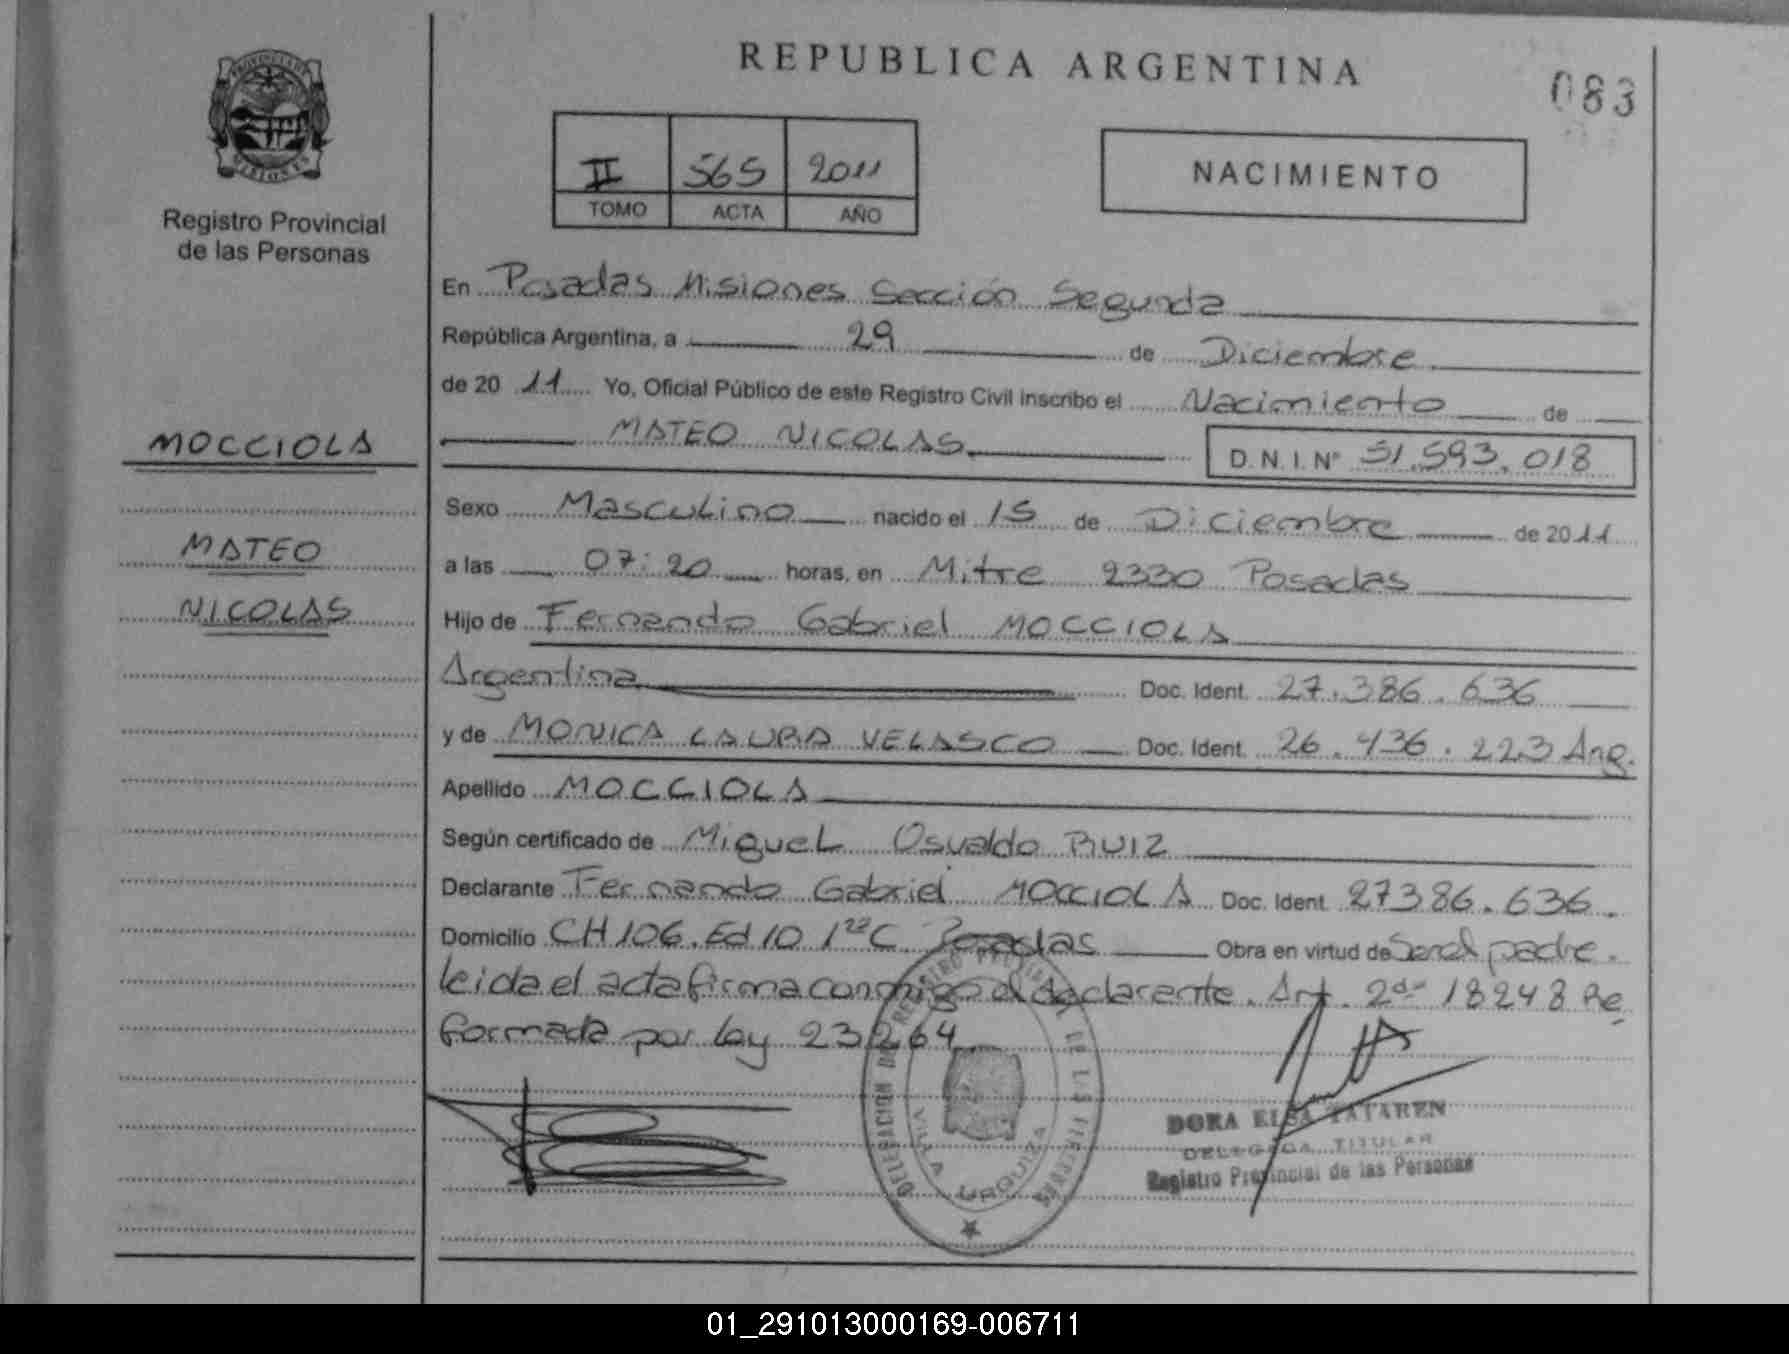 REPUBLICA ARGENTINA
083
PROVINCIA DE MISIONES
Registro Provincial
de las Personas
II 565 2011
TOMO ACTA AÑO
NACIMIENTO
En Posadas Misiones Sección Segunda
República Argentina, a 29 de Diciembre
de 20 11 Yo, Oficial Público de este Registro Civil inscribo el Nacimiento de
MATEO NICOLAS D.N.I. Nº 51.593.018
MOCCIOLA
MATEO
NICOLAS
Sexo Masculino nacido el 15 de Diciembre de 2011
a las 07:20 horas, en Mitre 2330 Posadas
Hijo de Fernando Gabriel MOCCIOLA
Argentina Doc. Ident. 27.386.636
y de MONICA LAURA VELASCO Doc. Ident. 26.436.223 Arg.
Apellido MOCCIOLA
Según certificado de Miguel Osvaldo RUIZ
Declarante Fernando Gabriel MOCCIOLA Doc. Ident. 27386.636.
Domicilio CH 106. Ed 10 1 C Posadas Obra en virtud de Ser el padre.
leida el acta firma conmigo el declarente. Art. 2do 18248 Re
formada por ley 23264
DELEGACION DEL REGISTRO PROVINCIAL DE LAS PERSONAS
VILLA URQUIZA
DORA ELSA TATAREN
DELEGADA TITULAR
Registro Provincial de las Personas
01_291013000169-006711